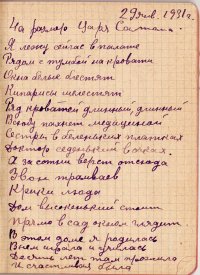 29 янв. 1931 г.
На размер Царя Салтана.
Я лежу сейчас в палате
Рядом с тумбой на кровати
Окна белые блестят
Кипарисы шелестят
Ряд кроватей длинный, длинный
Всюду пахнет медициной
Сестры в беленьких платках
Доктор седенький в очках.
А за сотни верст отсюда
Звон трамваев
Крики люда
Дом высокенький стоит
Прямо в сад окном глядит
В этом доме я родилась
В нем играла и училась
Десять лет там прожила
И счастлива была